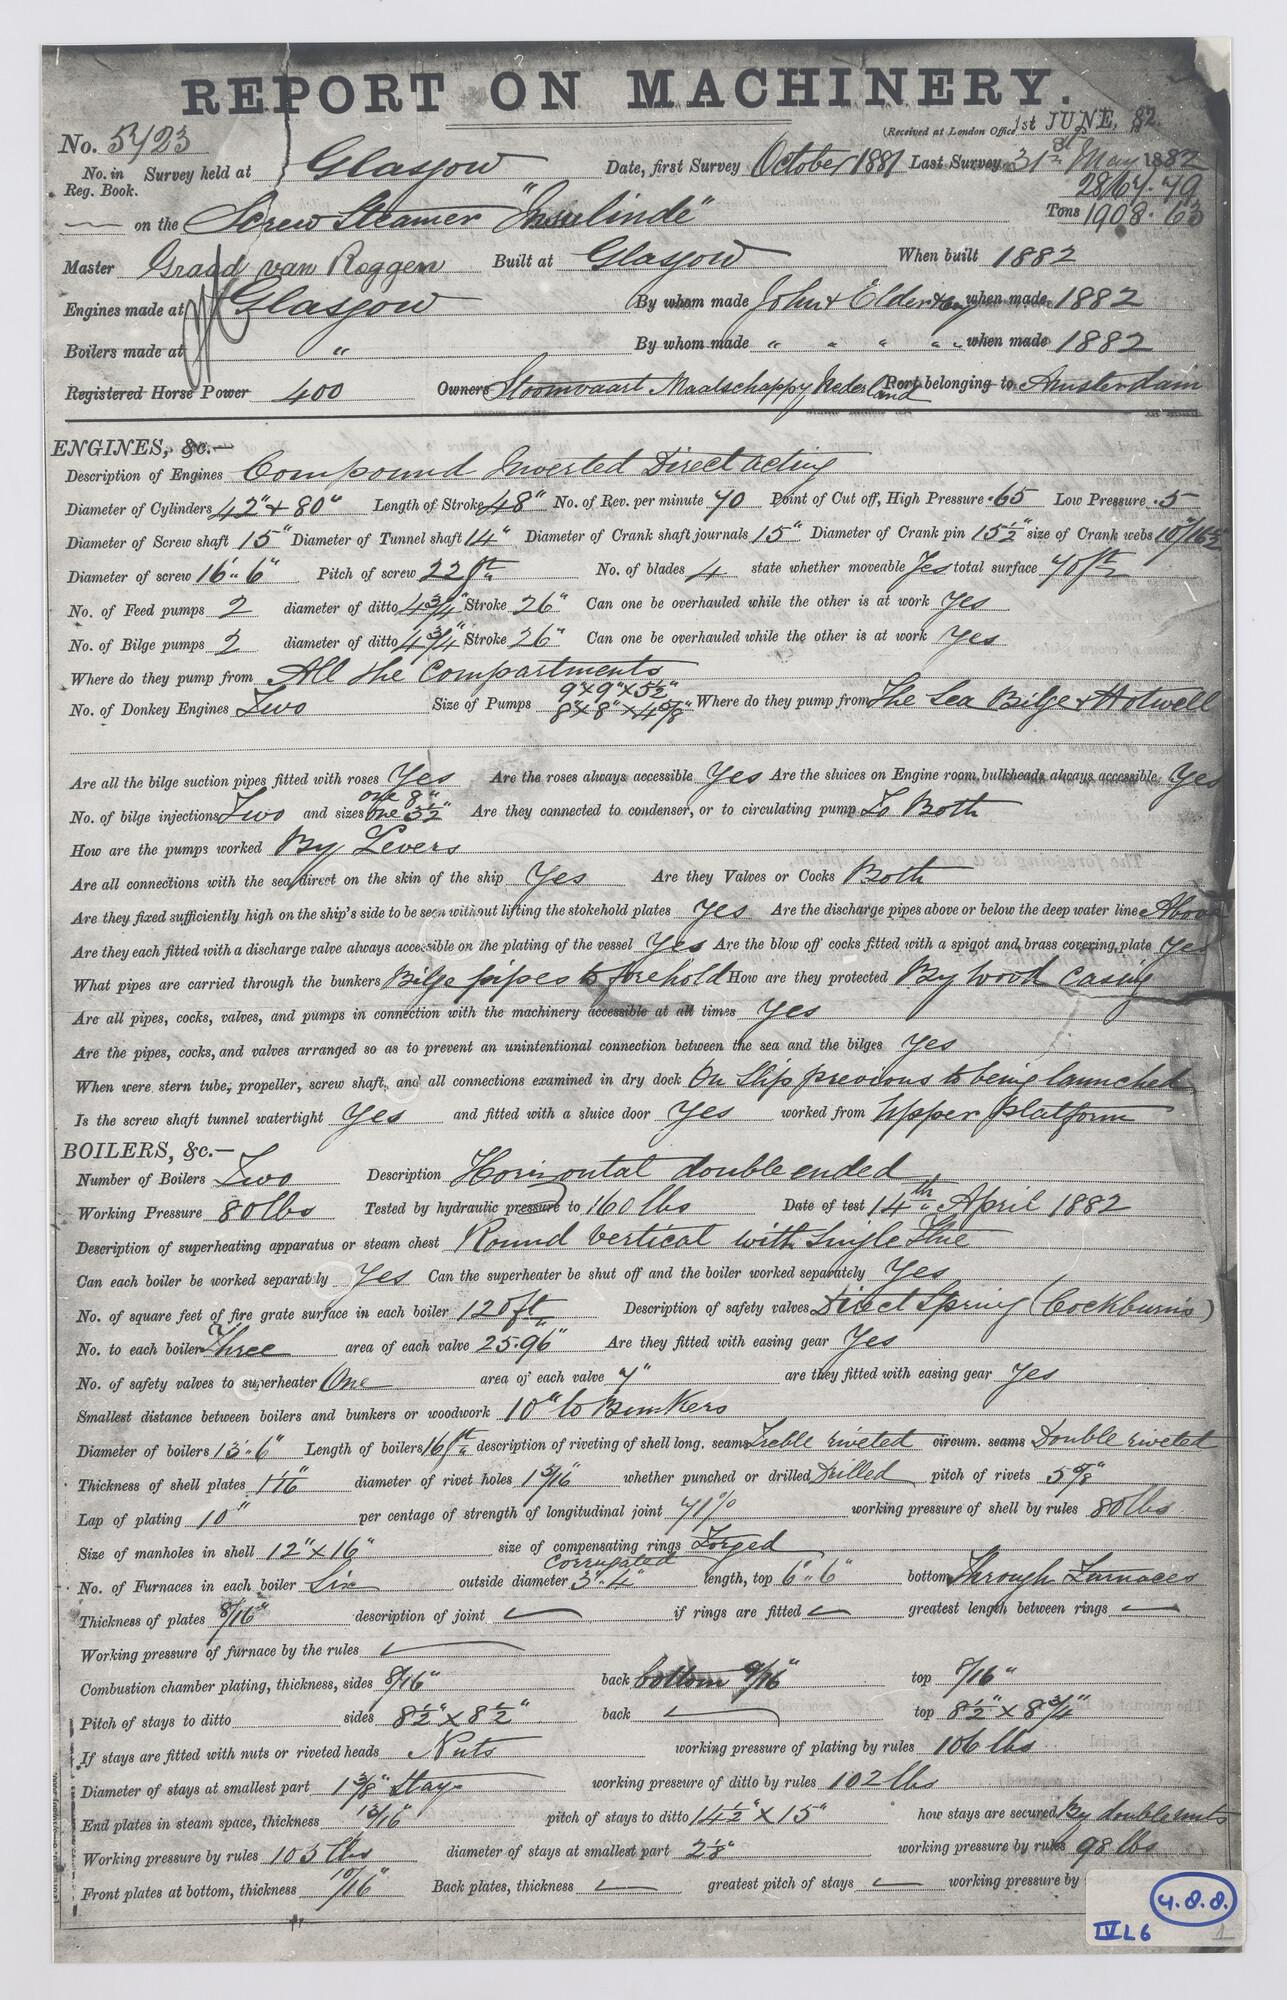 REPORT ON MACHINERY.
(Received at London Office 1st JUNE, 82.
No. 5723
No. in Reg. Book. Survey held at Glasgow Date, first Survey October 1881 Last Survey 31st May 1882
2864.79
on the Screw Steamer "Insulinde" Tons 1908.63
Master Graad van Roggen Built at Glasgow When built 1882
Engines made at Glasgow By whom made John Elder & Co when made 1882
Boilers made at " By whom made " " " " when made 1882
Registered Horse Power 400 Owners Stoomvaart Maatschappy Nederland Port belonging to Amsterdam
ENGINES, &c.—
Description of Engines Compound Inverted Direct acting
Diameter of Cylinders 42" & 80" Length of Stroke 48" No. of Rev. per minute 70 Point of Cut off, High Pressure .65 Low Pressure .5
Diameter of Screw shaft 15" Diameter of Tunnel shaft 14" Diameter of Crank shaft journals 15" Diameter of Crank pin 15½" size of Crank webs
Diameter of screw 16'..6" Pitch of screw 22 ft No. of blades 4 state whether moveable Yes total surface 70 ft
No. of Feed pumps 2 diameter of ditto 4¾" Stroke 26" Can one be overhauled while the other is at work Yes
No. of Bilge pumps 2 diameter of ditto 4¾" Stroke 26" Can one be overhauled while the other is at work Yes
Where do they pump from All the Compartments
No. of Donkey Engines Two Size of Pumps 9"x9"x5½" 8"x8"x4⅝" Where do they pump from The Sea Bilge & Hotwell
Are all the bilge suction pipes fitted with roses Yes Are the roses always accessible Yes Are the sluices on Engine room bulkheads always accessible Yes
No. of bilge injections Two and sizes one 8" one 3½" Are they connected to condenser, or to circulating pump To Both
How are the pumps worked By Levers
Are all connections with the sea direct on the skin of the ship Yes Are they Valves or Cocks Both
Are they fixed sufficiently high on the ship's side to be seen without lifting the stokehold plates Yes Are the discharge pipes above or below the deep water line Above
Are they each fitted with a discharge valve always accessible on the plating of the vessel Yes Are the blow off cocks fitted with a spigot and brass covering plate Yes
What pipes are carried through the bunkers Bilge pipes to forehold How are they protected By wood casing
Are all pipes, cocks, valves, and pumps in connection with the machinery accessible at all times Yes
Are the pipes, cocks, and valves arranged so as to prevent an unintentional connection between the sea and the bilges Yes
When were stern tube, propeller, screw shaft, and all connections examined in dry dock On Slip previous to being launched
Is the screw shaft tunnel watertight Yes and fitted with a sluice door Yes worked from Upper platform
BOILERS, &c.—
Number of Boilers Two Description Horizontal double ended
Working Pressure 80 lbs Tested by hydraulic pressure to 160 lbs Date of test 14th April 1882
Description of superheating apparatus or steam chest Round Vertical with Single Flue
Can each boiler be worked separately Yes Can the superheater be shut off and the boiler worked separately Yes
No. of square feet of fire grate surface in each boiler 120 ft Description of safety valves Direct Spring (Cockburn's)
No. to each boiler Three area of each valve 25.96" Are they fitted with easing gear Yes
No. of safety valves to superheater One area of each valve 7" are they fitted with easing gear Yes
Smallest distance between boilers and bunkers or woodwork 10" to Bunkers
Diameter of boilers 13'..6" Length of boilers 16 ft description of riveting of shell long. seams Treble riveted circum. seams Double riveted
Thickness of shell plates 1 1/16" diameter of rivet holes 1 5/16" whether punched or drilled Drilled pitch of rivets 5⅝"
Lap of plating 10" per centage of strength of longitudinal joint 71% working pressure of shell by rules 80 lbs
Size of manholes in shell 12" x 16" size of compensating rings Forged
No. of Furnaces in each boiler Six outside diameter corrugated 3'..4" length, top 6'..6" bottom Through Furnaces
Thickness of plates 8/16" description of joint if rings are fitted greatest length between rings
Working pressure of furnace by the rules
Combustion chamber plating, thickness, sides 8/16" back bottom 9/16" top 7/16"
Pitch of stays to ditto sides 8½" x 8½" back top 8½" x 8¾"
If stays are fitted with nuts or riveted heads Nuts working pressure of plating by rules 106 lbs
Diameter of stays at smallest part 1⅜" Stay working pressure of ditto by rules 102 lbs
End plates in steam space, thickness 13/16" pitch of stays to ditto 14½" x 15" how stays are secured By double nuts
Working pressure by rules 103 lbs diameter of stays at smallest part 2⅛" working pressure by rules 98 lbs
Front plates at bottom, thickness 10/16" Back plates, thickness greatest pitch of stays working pressure by
4.8.8.
IV L 6
1